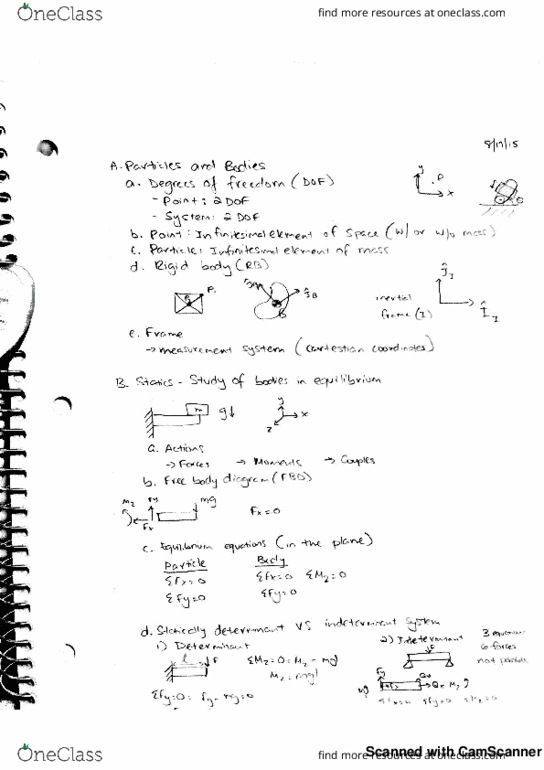 OneClass
find more resources at oneclass.com
8/17/15
A. Particles and Bodies
a. Degrees of freedom (DOF)
- Point: 2 DOF
- System: 2 DOF
y
P
x
b. Point: Infinitesimal element of space (w/ or w/o mass)
c. Particle: Infinitesimal element of mass
d. Rigid body (RB)
P
B
inertial
frame (I)
e. Frame
→ measurement system (cartestian coordinates)
B. Statics - Study of bodies in equilibrium
m
g↓
y
x
z
a. Actions
→ Forces → Moments → Couples
b. Free body diagram (FBD)
Mz
Fy
mg
Fx
Fx = 0
c. Equilibrium equations (in the plane)
Particle
Body
ΣFx = 0
ΣFx = 0 ΣMz = 0
ΣFy = 0
ΣFy = 0
d. Statically determinant VS indeterminant system
1) Determinant
2) Indeterminant
3 equations
6 forces
not possible
L
F
ΣMz = 0 = Mz - mg
Mz = mgl
ΣFy = 0: Fy - mg = 0
Fy
ΣFx = 0 ΣFy = 0 ΣMz = 0
OneClass
find more resources at oneclass.com
Scanned with CamScanner